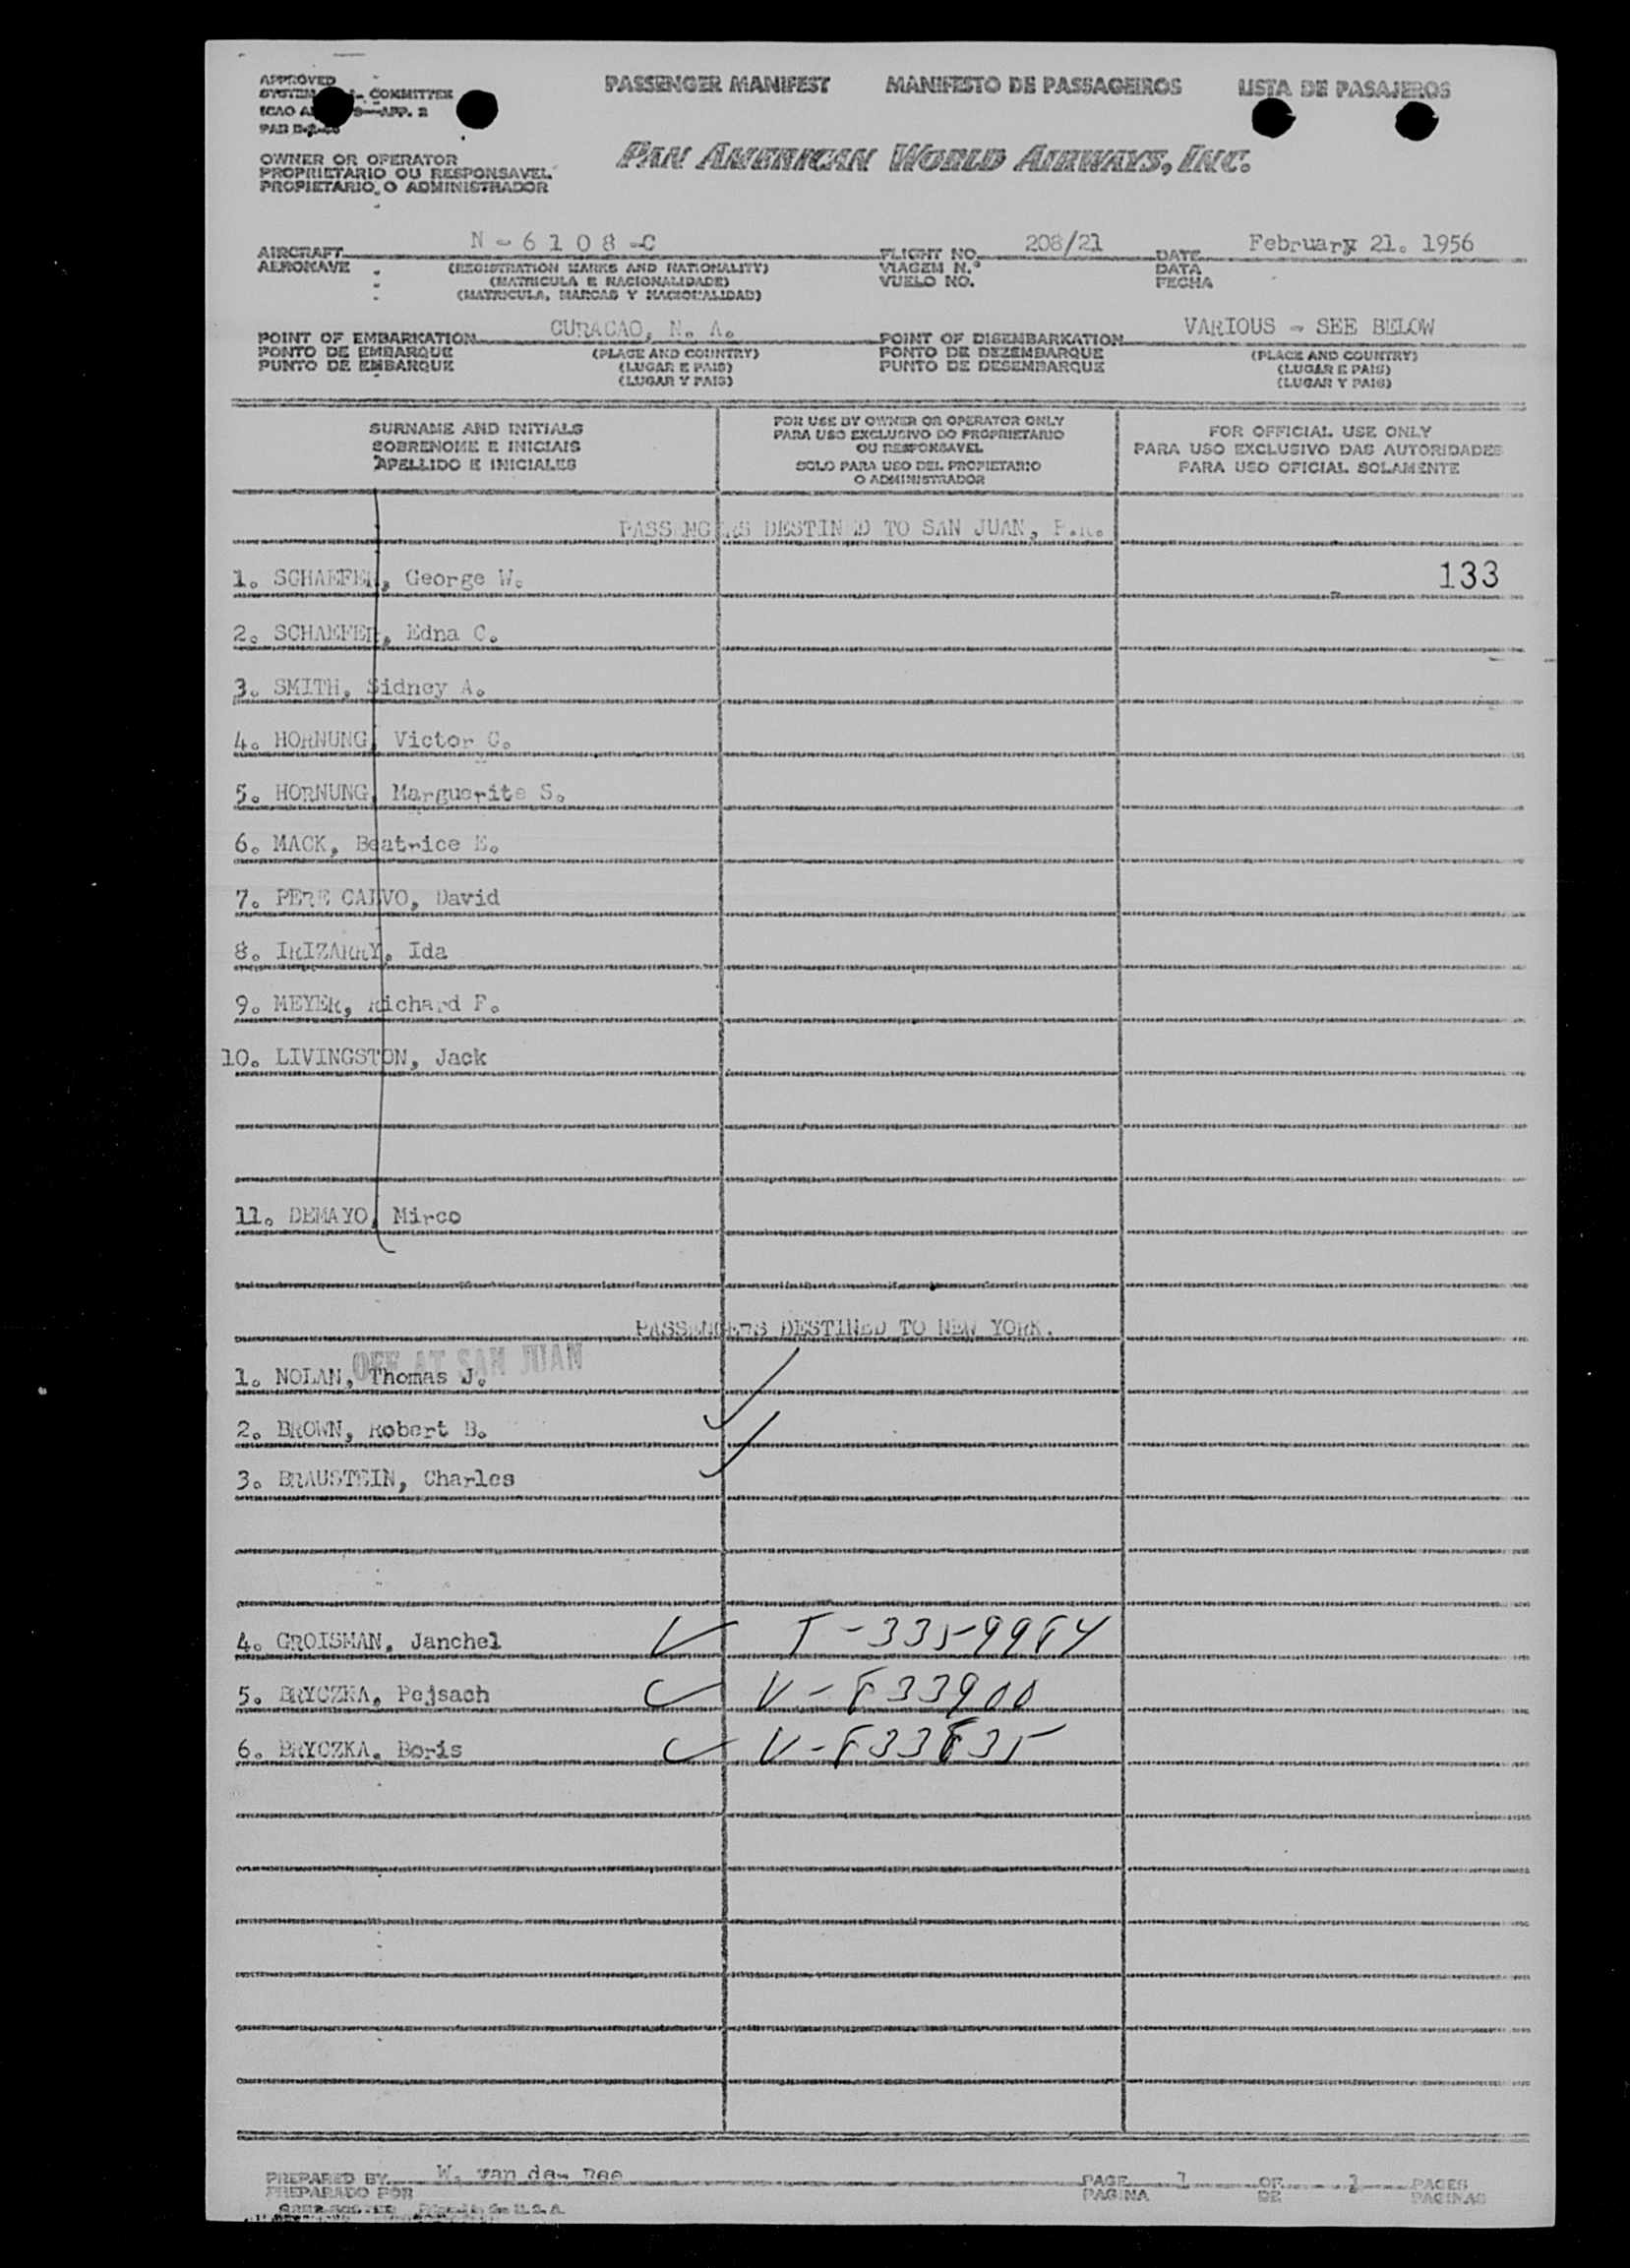 APPROVED
SYSTEM COMMITTEE
ICAO APP. 2
PASSENGER MANIFEST MANIFESTO DE PASSAGEIROS LISTA DE PASAJEROS
OWNER OR OPERATOR
PROPRIETARIO OU RESPONSAVEL
PROPIETARIO O ADMINISTRADOR
PAN AMERICAN WORLD AIRWAYS, INC.
AIRCRAFT N-6108-C FLIGHT NO. 208/21 DATE February 21. 1956
AERONAVE (REGISTRATION MARKS AND NATIONALITY) VIAGEM N.º DATA
(MATRICULA E NACIONALIDADE) VUELO NO. FECHA
(MATRICULA, MARCAS Y NACIONALIDAD)
POINT OF EMBARKATION CURACAO, N. A. POINT OF DISEMBARKATION VARIOUS - SEE BELOW
PONTO DE EMBARQUE (PLACE AND COUNTRY) PONTO DE DEZEMBARQUE (PLACE AND COUNTRY)
PUNTO DE EMBARQUE (LUGAR E PAIS) PUNTO DE DESEMBARQUE (LUGAR E PAIS)
(LUGAR Y PAIS) (LUGAR Y PAIS)
SURNAME AND INITIALS
SOBRENOME E INICIAIS
APELLIDO E INICIALES
FOR USE BY OWNER OR OPERATOR ONLY
PARA USO EXCLUSIVO DO PROPRIETARIO
OU RESPONSAVEL
SOLO PARA USO DEL PROPIETARIO
O ADMINISTRADOR
FOR OFFICIAL USE ONLY
PARA USO EXCLUSIVO DAS AUTORIDADES
PARA USO OFICIAL SOLAMENTE
PASSENGERS DESTINED TO SAN JUAN, P.R.
1. SCHAEFER, George W. 133
2. SCHAEFER, Edna C.
3. SMITH, Sidney A.
4. HORNUNG, Victor G.
5. HORNUNG, Marguerite S.
6. MACK, Beatrice E.
7. PERE CALVO, David
8. IRIZARRY, Ida
9. MEYER, Richard F.
10. LIVINGSTON, Jack
11. DEMAYO, Mirco
PASSENGERS DESTINED TO NEW YORK.
OFF AT SAN JUAN
1. NOLAN, Thomas J.
2. BROWN, Robert B.
3. BRAUSTEIN, Charles
4. GROISMAN, Janchel T-3359984
5. BRYCZKA, Pejsach V-833900
6. BRYCZKA, Boris V-833835
PREPARED BY W. van der PAGE 1 OF PAGES
PREPARADO POR PAGINA DE PAGINAS
U.S.A.